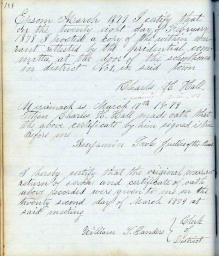 Epsom March 1878 I certify that
on the twenty eight day of February
1878 I posted a copy of the within war-
rant attested by the Prudential com
mittee at the door of the schoolhouse
in district No. in said town
Charles H. Hall.
Merrimack ss March 1878
When Charles H. Hall made oath that
the above certificate by him signed is true
before me
Benjamin Justice of the
I hereby certify that the original warrant
return of service and certificate of oath
above recorded were given to me on the
twenty second day of March 1878 at
said meeting
William T. Sanders Clerk
of
District